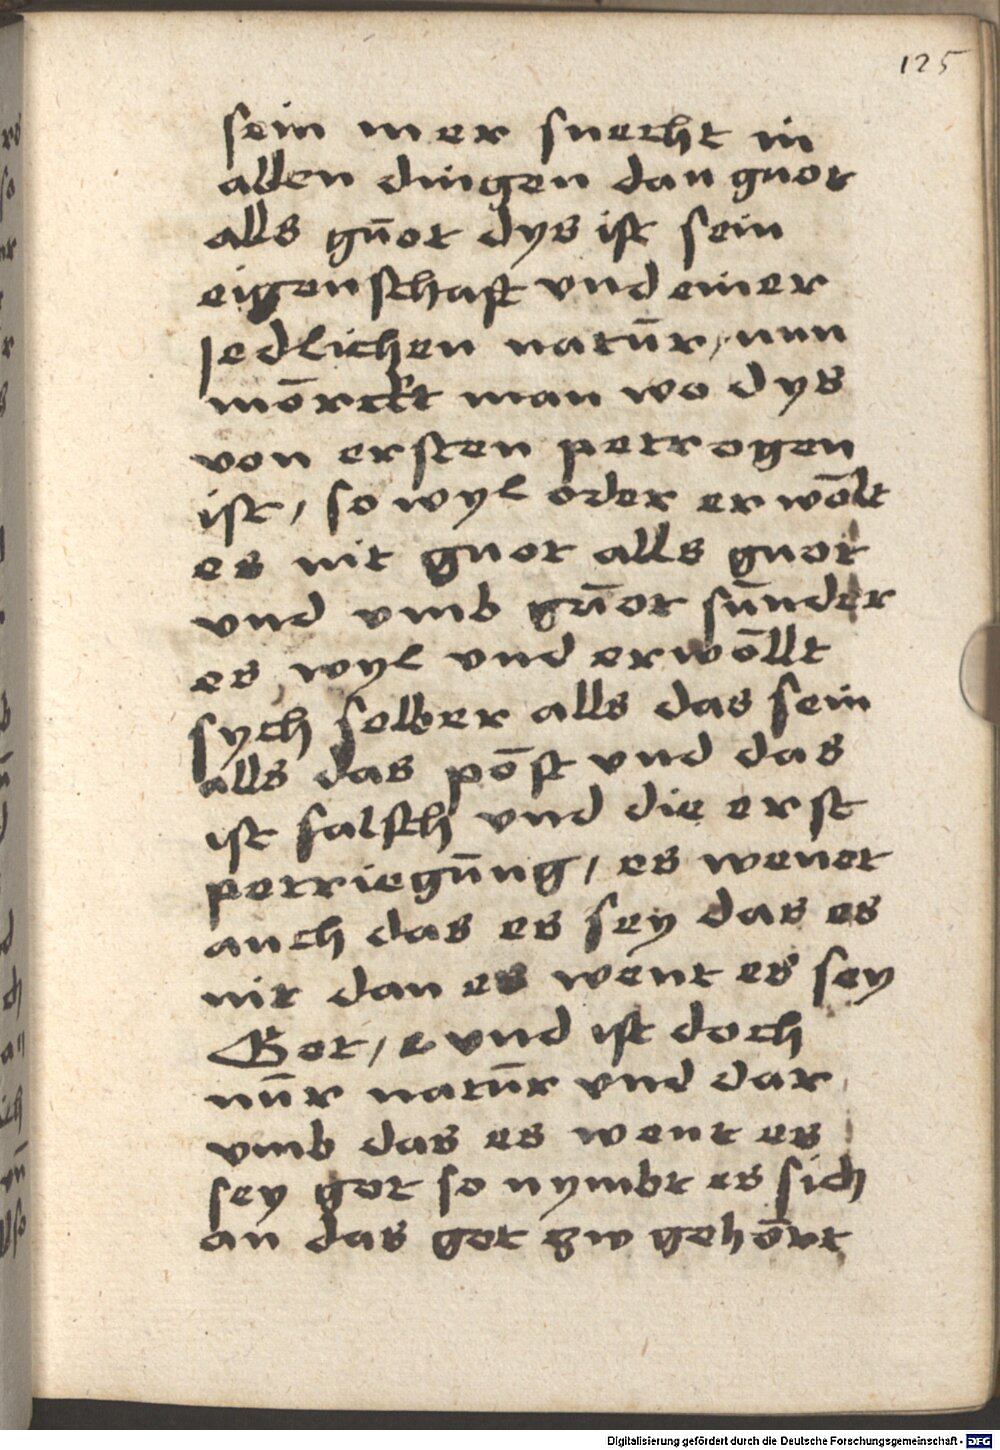 125
sein mer suecht in
allen dingen dan guot
alls gūot dys ist sein
eigenschaft vnd einer
jedlichen natūr / nun
mōrckt man wo dys
von ersten petrogen
ist / so wyl oder erwōlt
es nit guot alls guot
vnd vmb gūot sūnder
es wyl vnd erwōllt
sych selber alls das sein
alls das pōst vnd das
ist falsch vnd die erst
petriegūng / es wenet
auch das es sey das es
nit dan es went es sey
Got / e vnd ist doch
nūr natūr vnd dar
vmb das es went es
sey got so nymbt es sich
an das got zw gehōrt
Digitalisierung gefördert durch die Deutsche Forschungsgemeinschaft - DFG